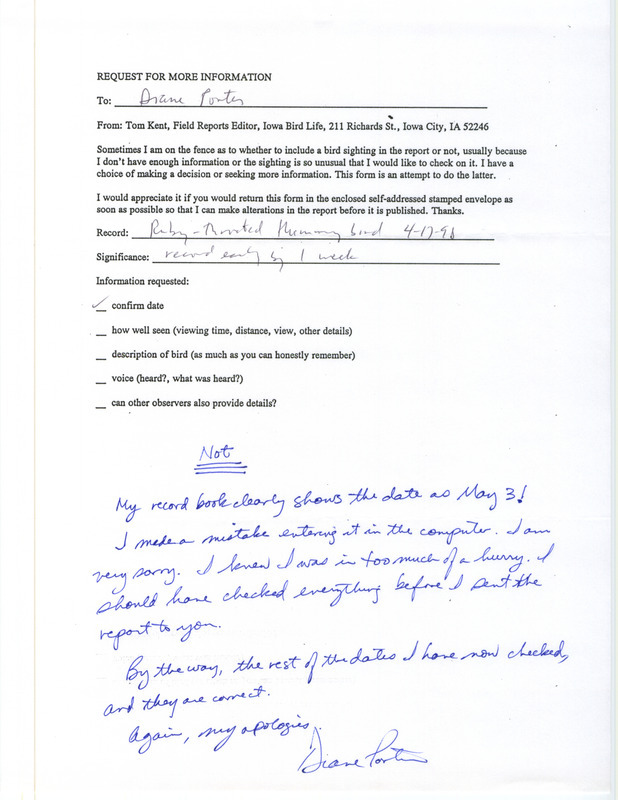 REQUEST FOR MORE INFORMATION
To: Diane Porter
From: Tom Kent, Field Reports Editor, Iowa Bird Life, 211 Richards St., Iowa City, IA 52246
Sometimes I am on the fence as to whether to include a bird sighting in the report or not, usually because
I don't have enough information or the sighting is so unusual that I would like to check on it. I have a
choice of making a decision or seeking more information. This form is an attempt to do the latter.
I would appreciate it if you would return this form in the enclosed self-addressed stamped envelope as
soon as possible so that I can make alterations in the report before it is published. Thanks.
Record: Ruby-Throated Hummingbird 4-17-98
Significance: record early by 1 week
Information requested:
✓ confirm date
__ how well seen (viewing time, distance, view, other details)
__ description of bird (as much as you can honestly remember)
__ voice (heard?, what was heard?)
__ can other observers also provide details?
Not
My record book clearly shows the date as May 3!
I made a mistake entering it in the computer. I am
very sorry. I knew I was in too much of a hurry. I
should have checked everything before I sent the
report to you.
By the way, the rest of the dates I have now checked,
and they are correct.
Again, my apologies.
Diane Porter